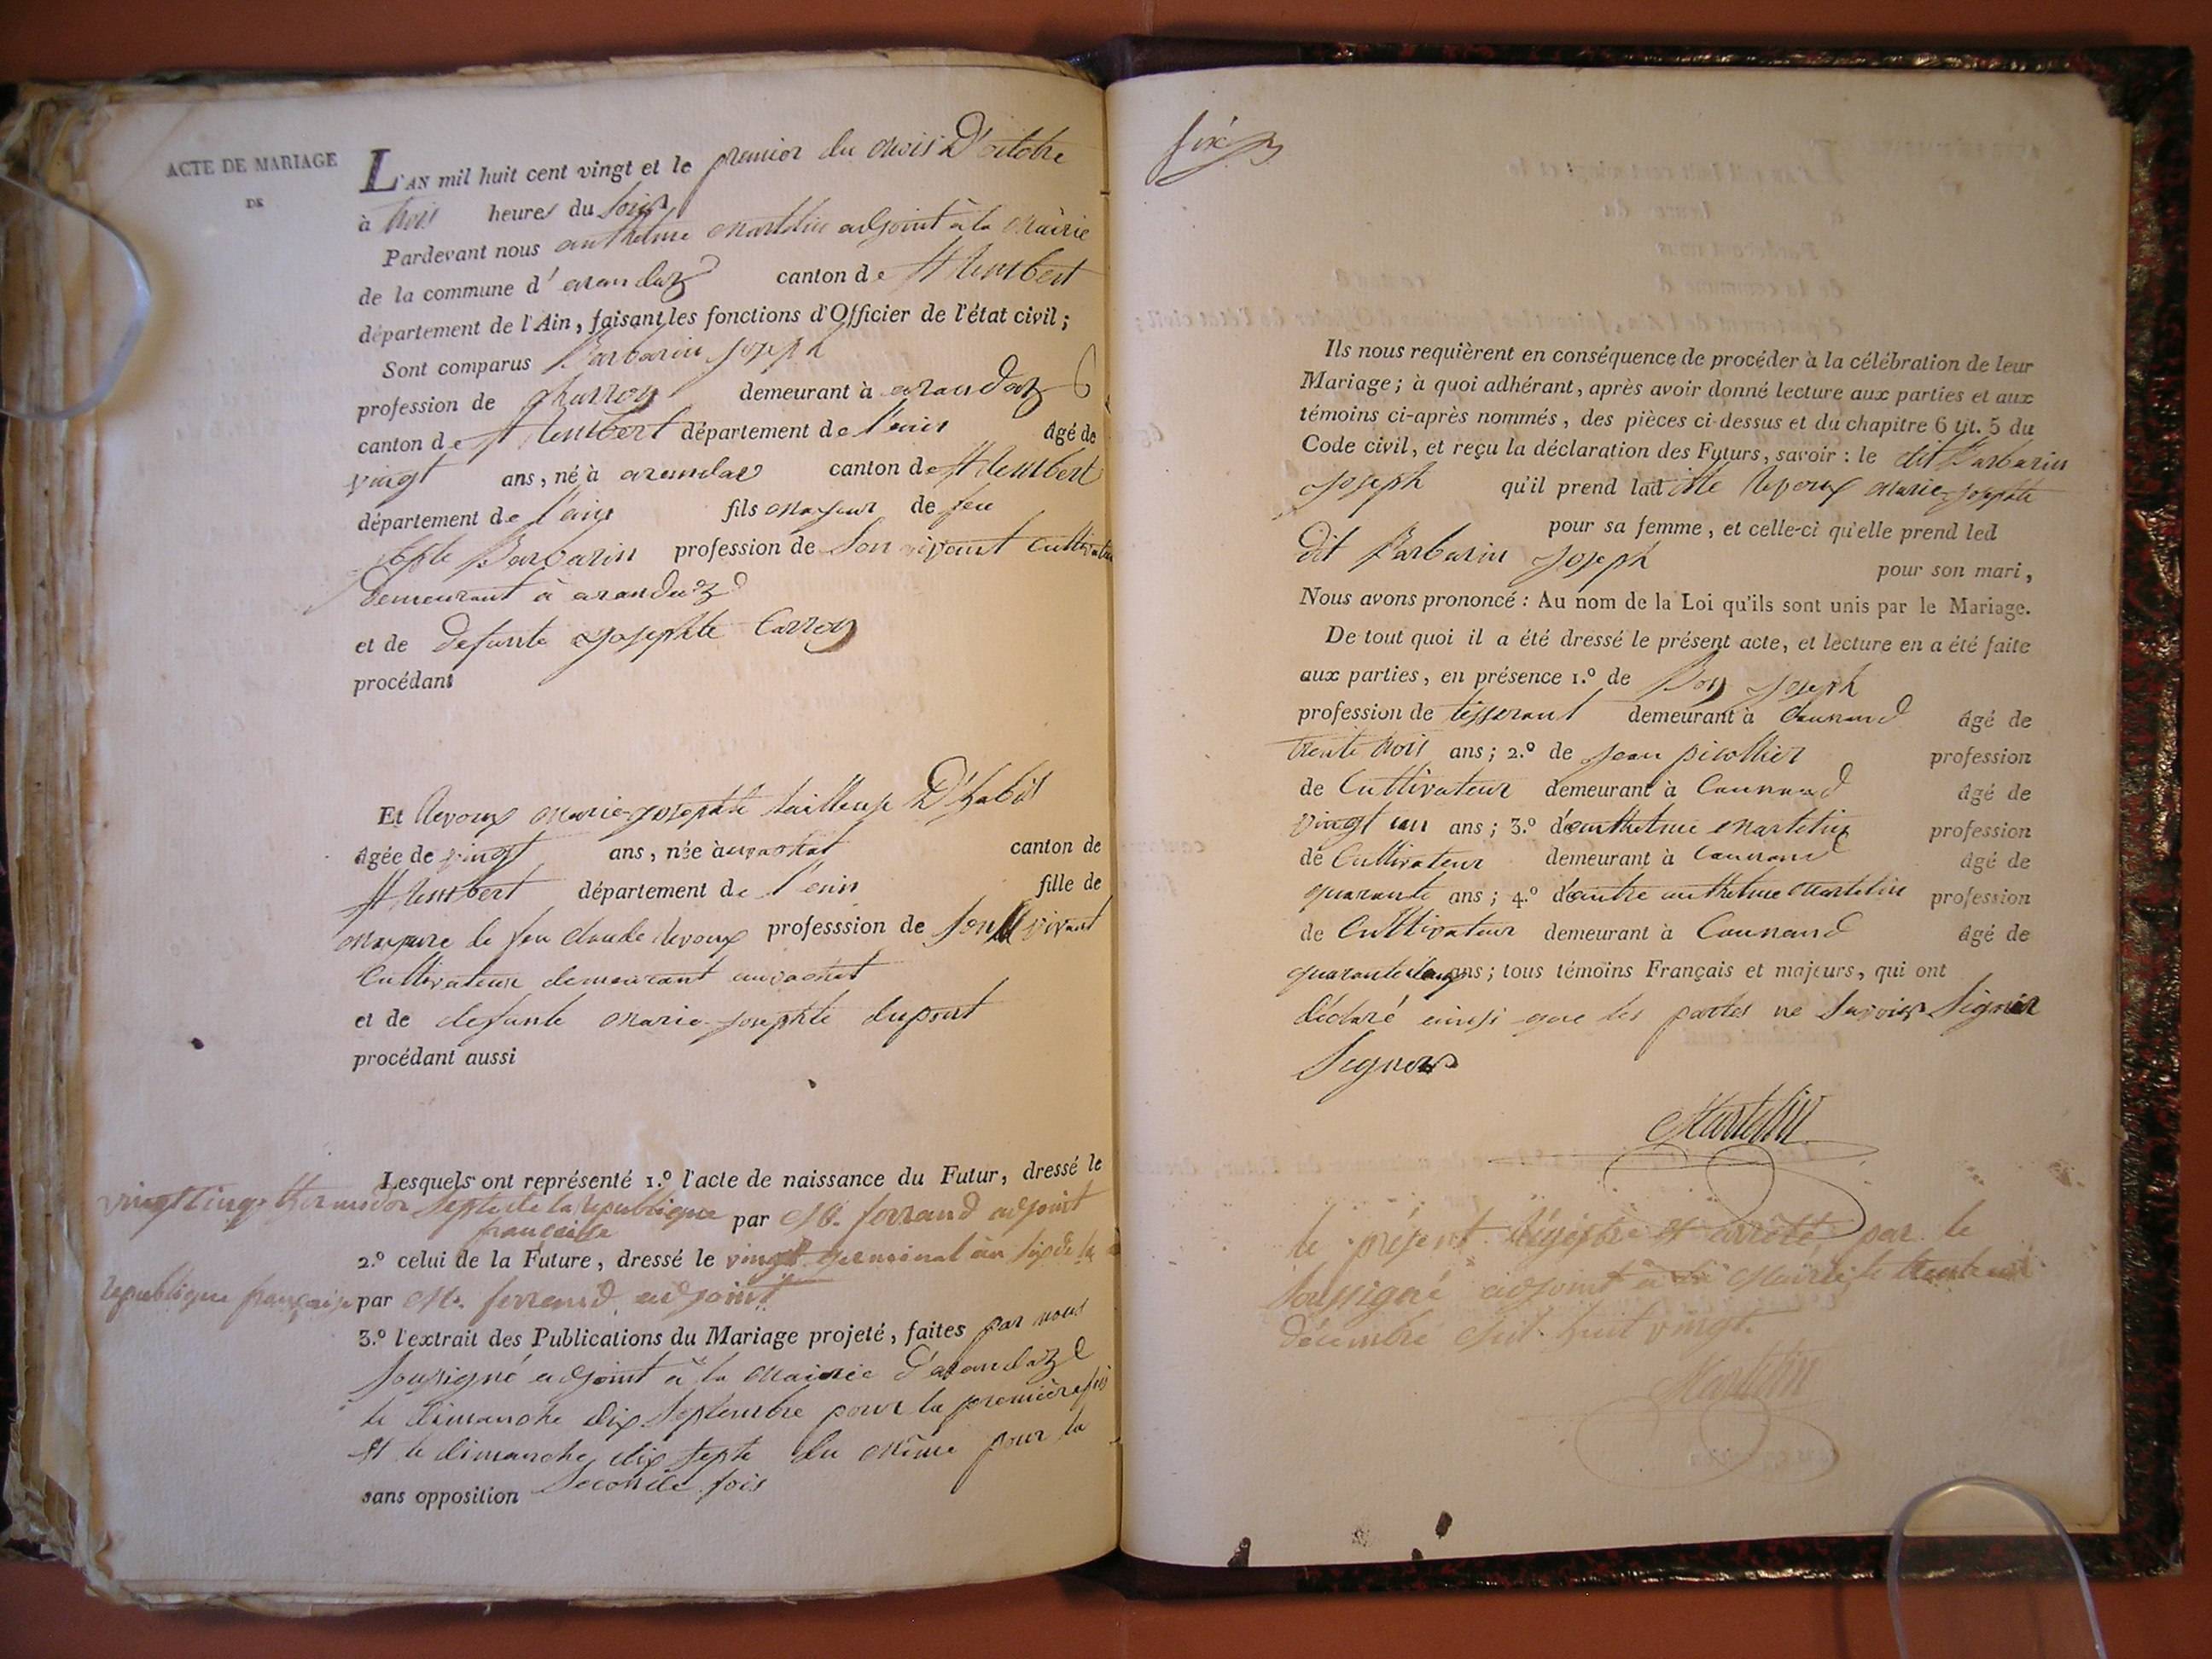 ACTE DE MARIAGE
DE
L'AN mil huit cent vingt et le premier du mois D'octobre
à trois heures du soir
Pardevant nous anthelme martelin adjoint à la mairie
de la commune d'arandaz canton de St Rembert
département de l'Ain, faisant les fonctions d'Officier de l'état civil;
Sont comparus Barbarin Joseph
profession de charron demeurant à arandaz
canton de St Rembert département de l'ain âgé de
vingt ans, né à arandaz canton de St Rembert
département de l'ain fils majeur de feu
Barbarin profession de son vivant cultivateur
demeurant à arandaz
et de defunte Josephte Carron
procédant
Et Revoux marie-josephte tailleuse D'habits
âgée de vingt ans, née canton de
St Rembert département de l'ain fille de
majeure de feu claude revoux professsion de son vivant
Cultivateur demeurant
et de defunte marie-josephte dupont
procédant aussi
Lesquels ont représenté 1.º l'acte de naissance du Futur, dressé le
vingt cinq thermidor septe de la republique
française par M. ferrand adjoint
2.º celui de la Future, dressé le vingt germinal an six de la
republique française par M. ferrand adjoint
3.º l'extrait des Publications du Mariage projeté, faites par nous
soussigné adjoint à la mairie d'arandaz
le dimanche dix septembre pour la première fois
et le dimanche dix septe du même pour la
sans opposition seconde fois
six
Ils nous requièrent en conséquence de procéder à la célébration de leur
Mariage; à quoi adhérant, après avoir donné lecture aux parties et aux
témoins ci-après nommés, des pièces ci-dessus et du chapitre 6 tit. 5 du
Code civil, et reçu la déclaration des Futurs, savoir: le dit Barbarin
Joseph qu'il prend lad itte Revoux marie-josephte
pour sa femme, et celle-ci qu'elle prend led
dit Barbarin Joseph pour son mari,
Nous avons prononcé: Au nom de la Loi qu'ils sont unis par le Mariage.
De tout quoi il a été dressé le présent acte, et lecture en a été faite
aux parties, en présence 1.º de Joseph
profession de tisserant demeurant à Counand âgé de
trente trois ans; 2.º de jean picollier profession
de Cultivateur demeurant à Counand âgé de
vingt un ans; 3.º d'anthelme martelin profession
de Cultivateur demeurant à Counand âgé de
quarante ans; 4.º d'autre anthelme martelin profession
de Cultivateur demeurant à Counand âgé de
quarante ans; tous témoins Français et majeurs, qui ont
déclaré ainsi que les parties ne savoir signer
Signer
Martelin
le présent régistre et arrêté par le
soussigné adjoint à la mairie le trente un
décembre mil huit vingt.
Martelin